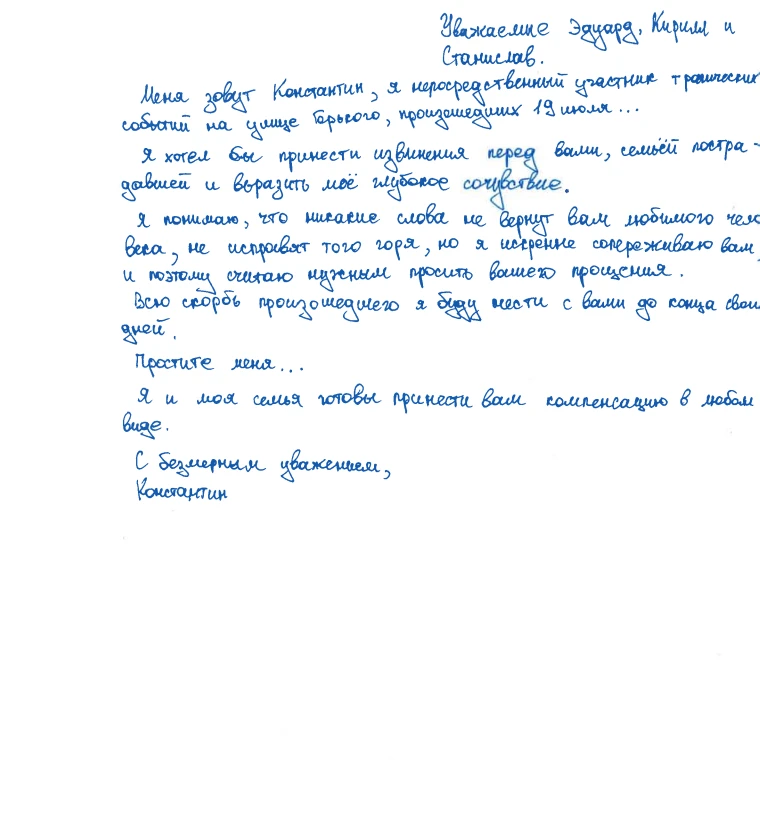 Уважаемые Эдуард, Кирилл и
Станислав.
Меня зовут Константин, я непосредственный участник трагических
событий на улице Горького, произошедших 19 июля...
Я хотел бы принести извинения перед вами, семьёй постра-
давшей и выразить моё глубокое сочувствие.
Я понимаю, что никакие слова не вернут вам любимого чело
века, не исправят того горя, но я искренне сопереживаю вам,
и поэтому считаю нужным просить вашего прощения.
Всю скорбь произошедшего я буду нести с вами до конца свои
дней.
Простите меня...
Я и моя семья готовы принести вам компенсацию в любом
виде.
С безмерным уважением,
Константин